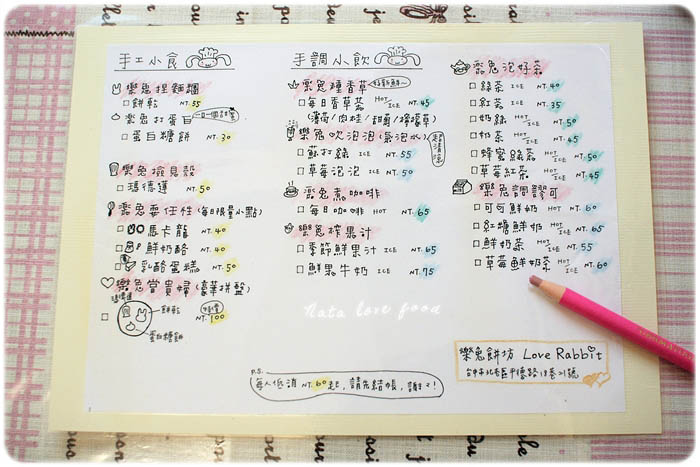 手工小食
樂兔捏麵糰
餅乾 NT. 55
樂兔打蛋白
蛋白糖餅 NT. 30
樂兔撿貝殼
瑪德蓮 NT. 50
樂兔耍任性(每日限量小點)
馬卡龍 NT. 40
鮮奶酪 NT. 40
乳酪蛋糕 NT. 50
樂兔當貴婦(豪華拼盤)
瑪德蓮
餅乾
蛋白糖餅
NT. 100
手調小飲
樂兔種香草
每日香草茶 HOT ICE NT. 45
樂兔吹泡泡(氣泡水)
蘇打綠 ICE NT. 55
草莓泡泡 ICE NT. 50
樂兔煮咖啡
每日咖啡 HOT NT. 65
樂兔榨果汁
季節鮮果汁 ICE NT. 65
鮮果牛奶 ICE NT. 75
樂兔泡好茶
綠茶 ICE NT. 40
紅茶 ICE NT. 35
奶綠 HOT ICE NT. 50
奶茶 HOT ICE NT. 45
蜂蜜綠茶 HOT ICE NT. 50
草莓紅茶 HOT ICE NT. 45
樂兔調謬可
可可鮮奶 HOT ICE NT. 60
紅糖鮮奶 HOT ICE NT. 65
鮮奶茶 HOT ICE NT. 55
草莓鮮奶茶 HOT ICE NT. 60
Nata love food
樂兔餅坊 Love Rabbit
台中市北區平德路18巷21號
P.S.
每人低消 NT. 60起,請先結帳,謝謝!